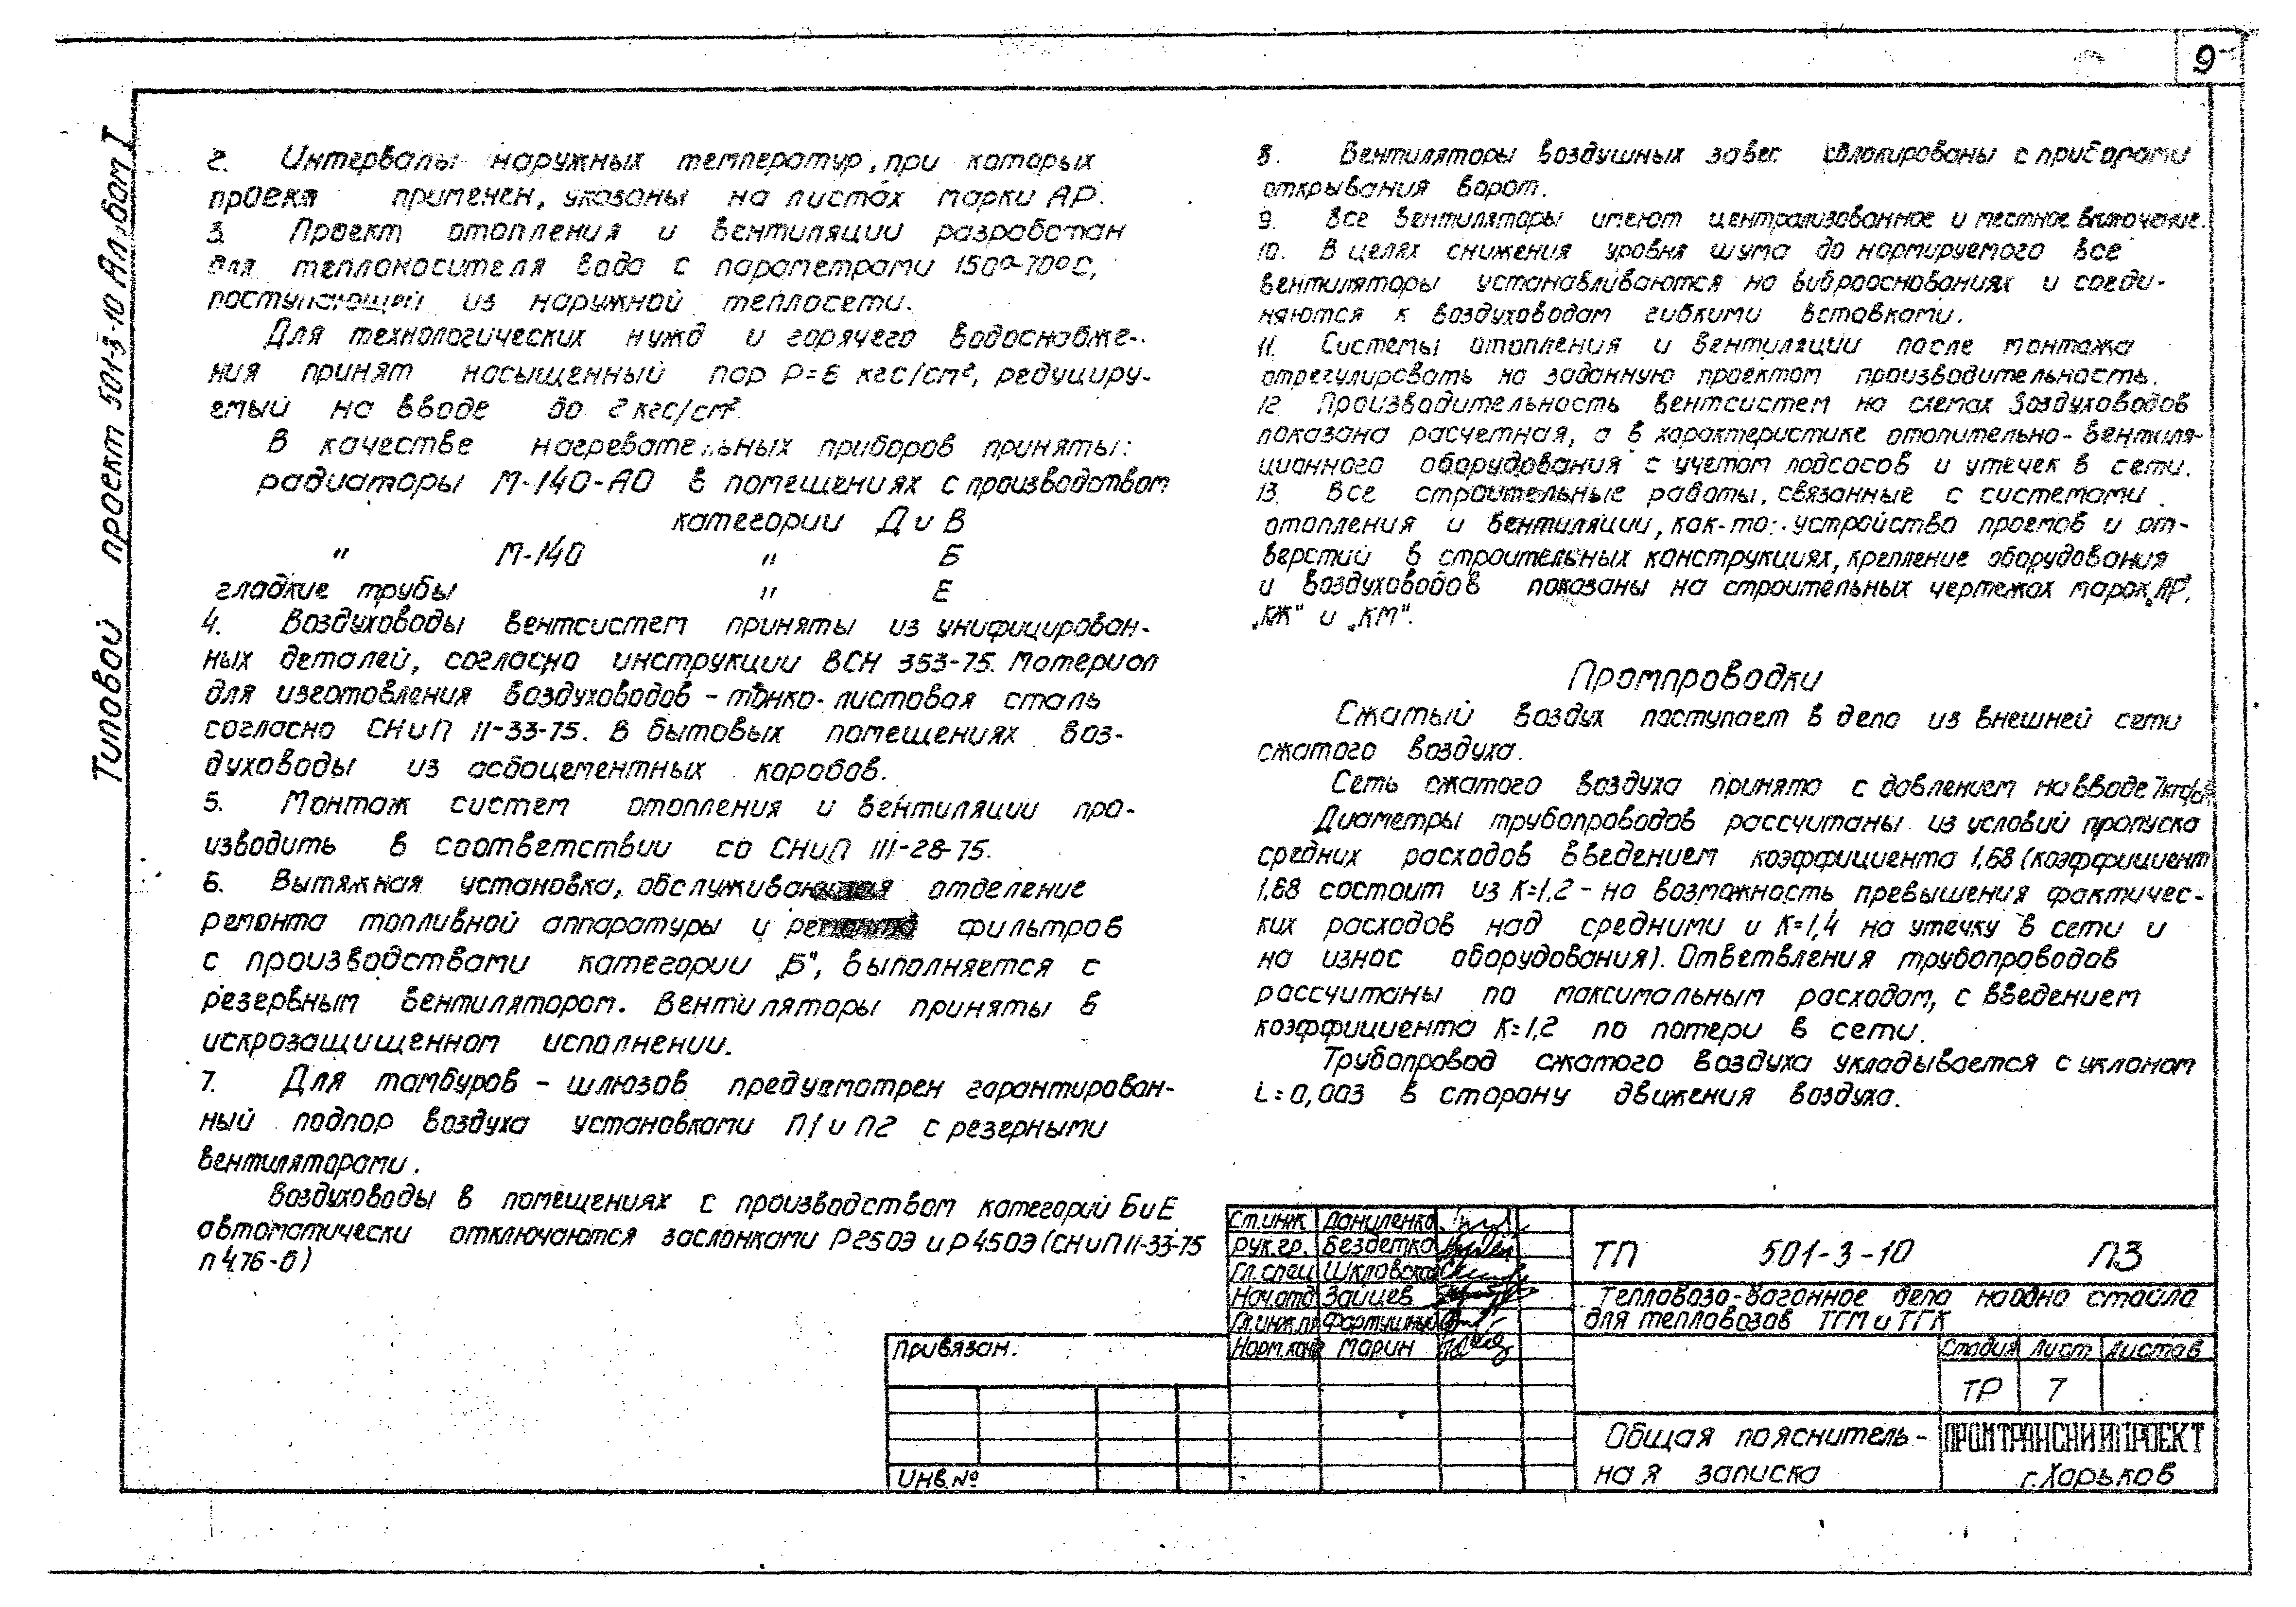 9
Типовой проект 501-3-10 Альбом I
2. Интервалы наружных температур, при которых
проект применен, указаны на листах марки АР.
3. Проект отопления и вентиляции разработан
для теплоносителя вода с параметрами 150°-70°С,
поступающей из наружной теплосети.
Для технологических нужд и горячего водоснабже-
ния принят насыщенный пар Р=6 кгс/см², редуциру-
емый на вводе до 2 кгс/см²
В качестве нагревательных приборов приняты:
радиаторы М-140-АО в помещениях с производством
категории Д и В
" М-140 " Б
гладкие трубы " Е
4. Воздуховоды вентсистем приняты из унифицирован-
ных деталей, согласно инструкции ВСН 353-75. Материал
для изготовления воздуховодов - тонко-листовая сталь
согласно СНиП II-33-75. В бытовых помещениях воз-
духоводы из асбоцементных коробов.
5. Монтаж систем отопления и вентиляции про-
изводить в соответствии со СНиП III-28-75.
6. Вытяжная установка, обслуживающая отделение
ремонта топливной аппаратуры и фильтров
с производствами категории „Б", выполняется с
резервным вентилятором. Вентиляторы приняты в
искрозащищенном исполнении.
7. Для тамбуров - шлюзов предусмотрен гарантирован-
ный подпор воздуха установками П1 и П2 с резерными
вентиляторами.
Воздуховоды в помещениях с производством категорий Б и Е
автоматически отключаются заслонками Р250Э и Р450Э (СНиП II-33-75
п 4.76-б)
8. Вентиляторы воздушных завес сблокированы с приборами
открывания ворот.
9. Все вентиляторы имеют централизованное и местное включение.
10. В целях снижения уровня шума до нормируемого все
вентиляторы устанавливаются на виброоснованиях и соеди-
няются к воздуховодам гибкими вставками.
11. Системы отопления и вентиляции после монтажа
отрегулировать на заданную проектом производительность.
12 Производительность вентсистем на схемах воздуховодов
показана расчетная, а в характеристике отопительно-вентиля-
ционного оборудования с учетом подсосов и утечек в сети.
13. Все строительные работы, связанные с системами
отопления и вентиляции, как-то: устройство проемов и от-
верстий в строительных конструкциях, крепление оборудования
и воздуховодов показаны на строительных чертежах марок „АР",
„КЖ" и „КМ".
Промпроводки
Сжатый воздух поступает в депо из внешней сети
сжатого воздуха.
Сеть сжатого воздуха принята с давлением на вводе 7 кгс/см²
Диаметры трубопроводов рассчитаны из условий пропуска
средних расходов введением коэффициента 1,68 (коэффициент
1,68 состоит из К=1,2 - на возможность превышения фактичес-
ких расходов над средними и К=1,4 на утечку в сети и
на износ оборудования). Ответвления трубопроводов
рассчитаны по максимальным расходам, с введением
коэффициента К=1,2 по потери в сети.
Трубопровод сжатого воздуха укладывается с уклоном
i=0,003 в сторону движения воздуха.
Ст.инж Даниленко
рук.гр. Бездетко
Гл.спец Шкловский
Нач.отд Зайцев
Гл.инж.пр Фартушный
Норм.конт Марин
ТП 501-3-10 ПЗ
Тепловозо-вагонное депо на одно стойло
для тепловозов ТГМ и ТГК
Стадия Лист Листов
ТР 7
Общая пояснитель-
ная записка
ПРОМТРАНСНИИПРОЕКТ
г.Харьков
Привязан.
Инв.№